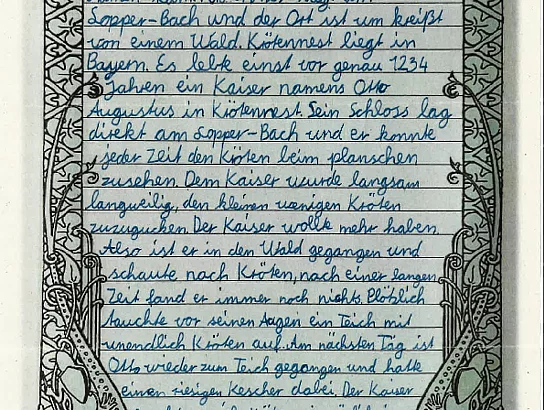 Sopper-Bach und der Ort ist um kreißt
von einem Wald. Krötennest liegt in
Bayern. Es lebte einst vor genau 1234
Jahren ein Kaiser namens Otto
Augustus in Krötennest. Sein Schloss lag
direkt am Sopper-Bach und er konnte
jeder Zeit den Kröten beim planschen
zusehen. Dem Kaiser wurde langsam
langweilig, den kleinen wenigen Kröten
zuzugucken. Der Kaiser wollte mehr haben.
Also ist er in den Wald gegangen und
schaute nach Kröten, nach einer langen
Zeit fand er immer noch nichts. Plötzlich
tauchte vor seinen Augen ein Teich mit
unendlich Kröten auf. Am nächsten Tag ist
Otto wieder zum Teich gegangen und hatte
einen riesigen Kescher dabei. Der Kaiser